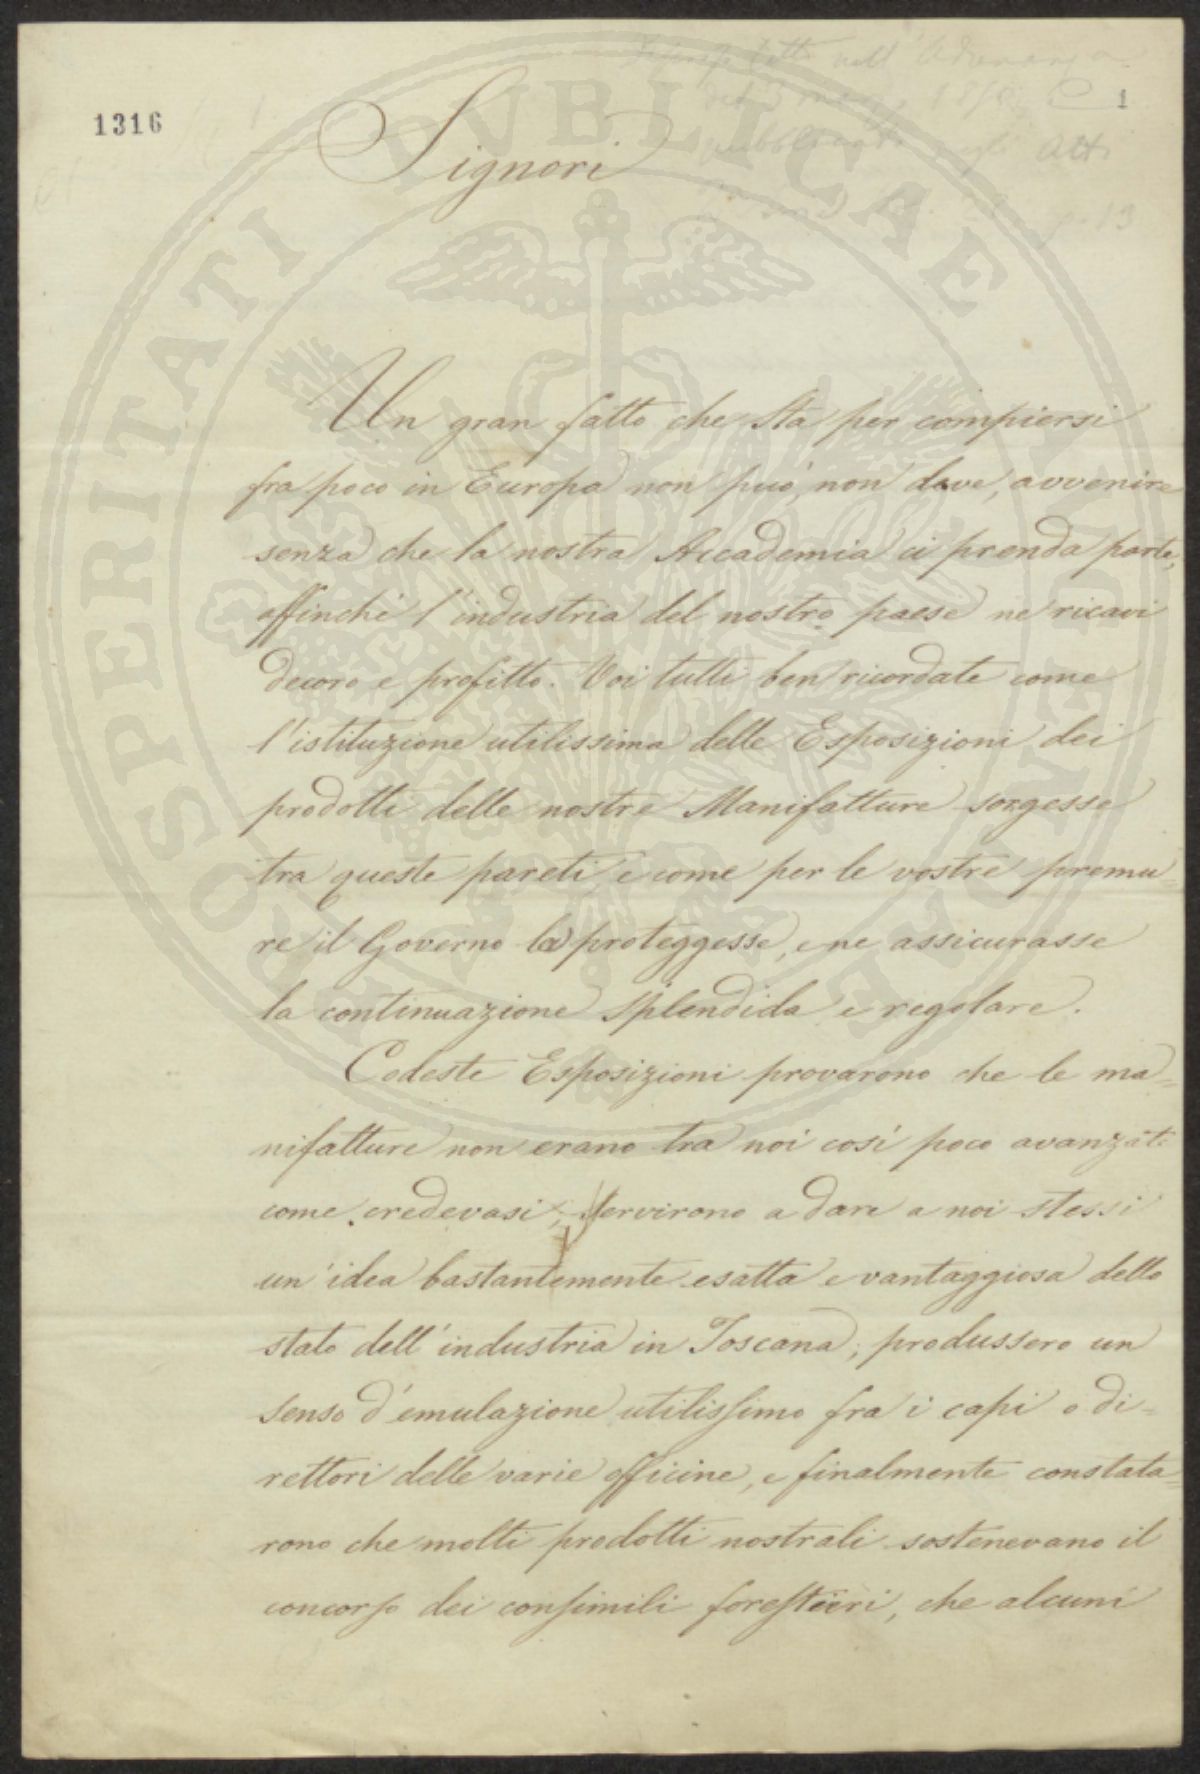 1316
1
nell' Adunanza
del 3
Atti
13
Signori
Un gran fatto che sta per compiersi
fra poco in Europa non può, non deve, avvenire
senza che la nostra Accademia ci prenda parte,
affinchè l'industria del nostro paese ne ricavi
decoro e profitto. Voi tutti ben ricordate come
l'istituzione utilissima delle Esposizioni dei
prodotti delle nostre Manifatture sorgesse
tra queste pareti, e come per le vostre premu=
re il Governo la proteggesse, e ne assicurasse
la continuazione splendida e regolare.
Codeste Esposizioni provarono che le ma=
nifatture non erano tra noi così poco avanzate
come credevasi; servirono a dare a noi stessi
un'idea bastantemente esatta e vantaggiosa dello
stato dell'industria in Toscana; produssero un
senso d'emulazione utilissimo fra i capi o di=
rettori delle varie officine, e finalmente constata=
rono che molti prodotti nostrali sostenevano il
concorso dei consimili forestieri, che alcuni
PROSPERITATI PUBLICAE AUGENDAE